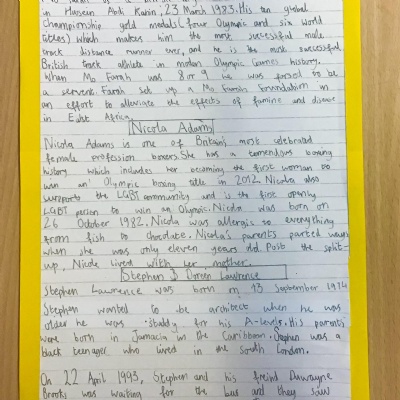 in Hussein Abdi Kahin, 23 March 1983. His ten global
championship gold medals (four Olympic and six World
titles) which makes him the most successful male
track distance runner ever, and he is the most successful
British track athlete in modern Olympic Games history.
When Mo Farah was 8 or 9 he was forced to be
a servent. Farah set up a Mo Farah Foundation in
an effort to alleviate the effects of famine and disease
in East Africa.
Nicola Adams
Nicola Adams is one of Britain's most celebrated
female profession boxers. She has a tomendous boxing
history which includes her becoming the first woman to
win an Olympic boxing title in 2012. Nicola also
surports the LGBT community and is the first openly
LGBT person to win an Olympic. Nicola was born on
26 October 1982. Nicola was allergic to everything
from fish to chocolate. Nicola's parents parted ways
when she was only eleven years old. Post the split-
up, Nicole lived with her mother.
Stephen & Doreen Lawrence
Stephen Lawrence was born on 13 September 1974
Stephen wanted to be architect when he was
older he was studdy for his A-levels. His parents
were born in Jamacia in the Carribbean. Stephen was a
black teenager who lived in the South London.
On 22 April 1993, Stephen and his freind Duwayne
Brooks was waiting for the bus and they saw